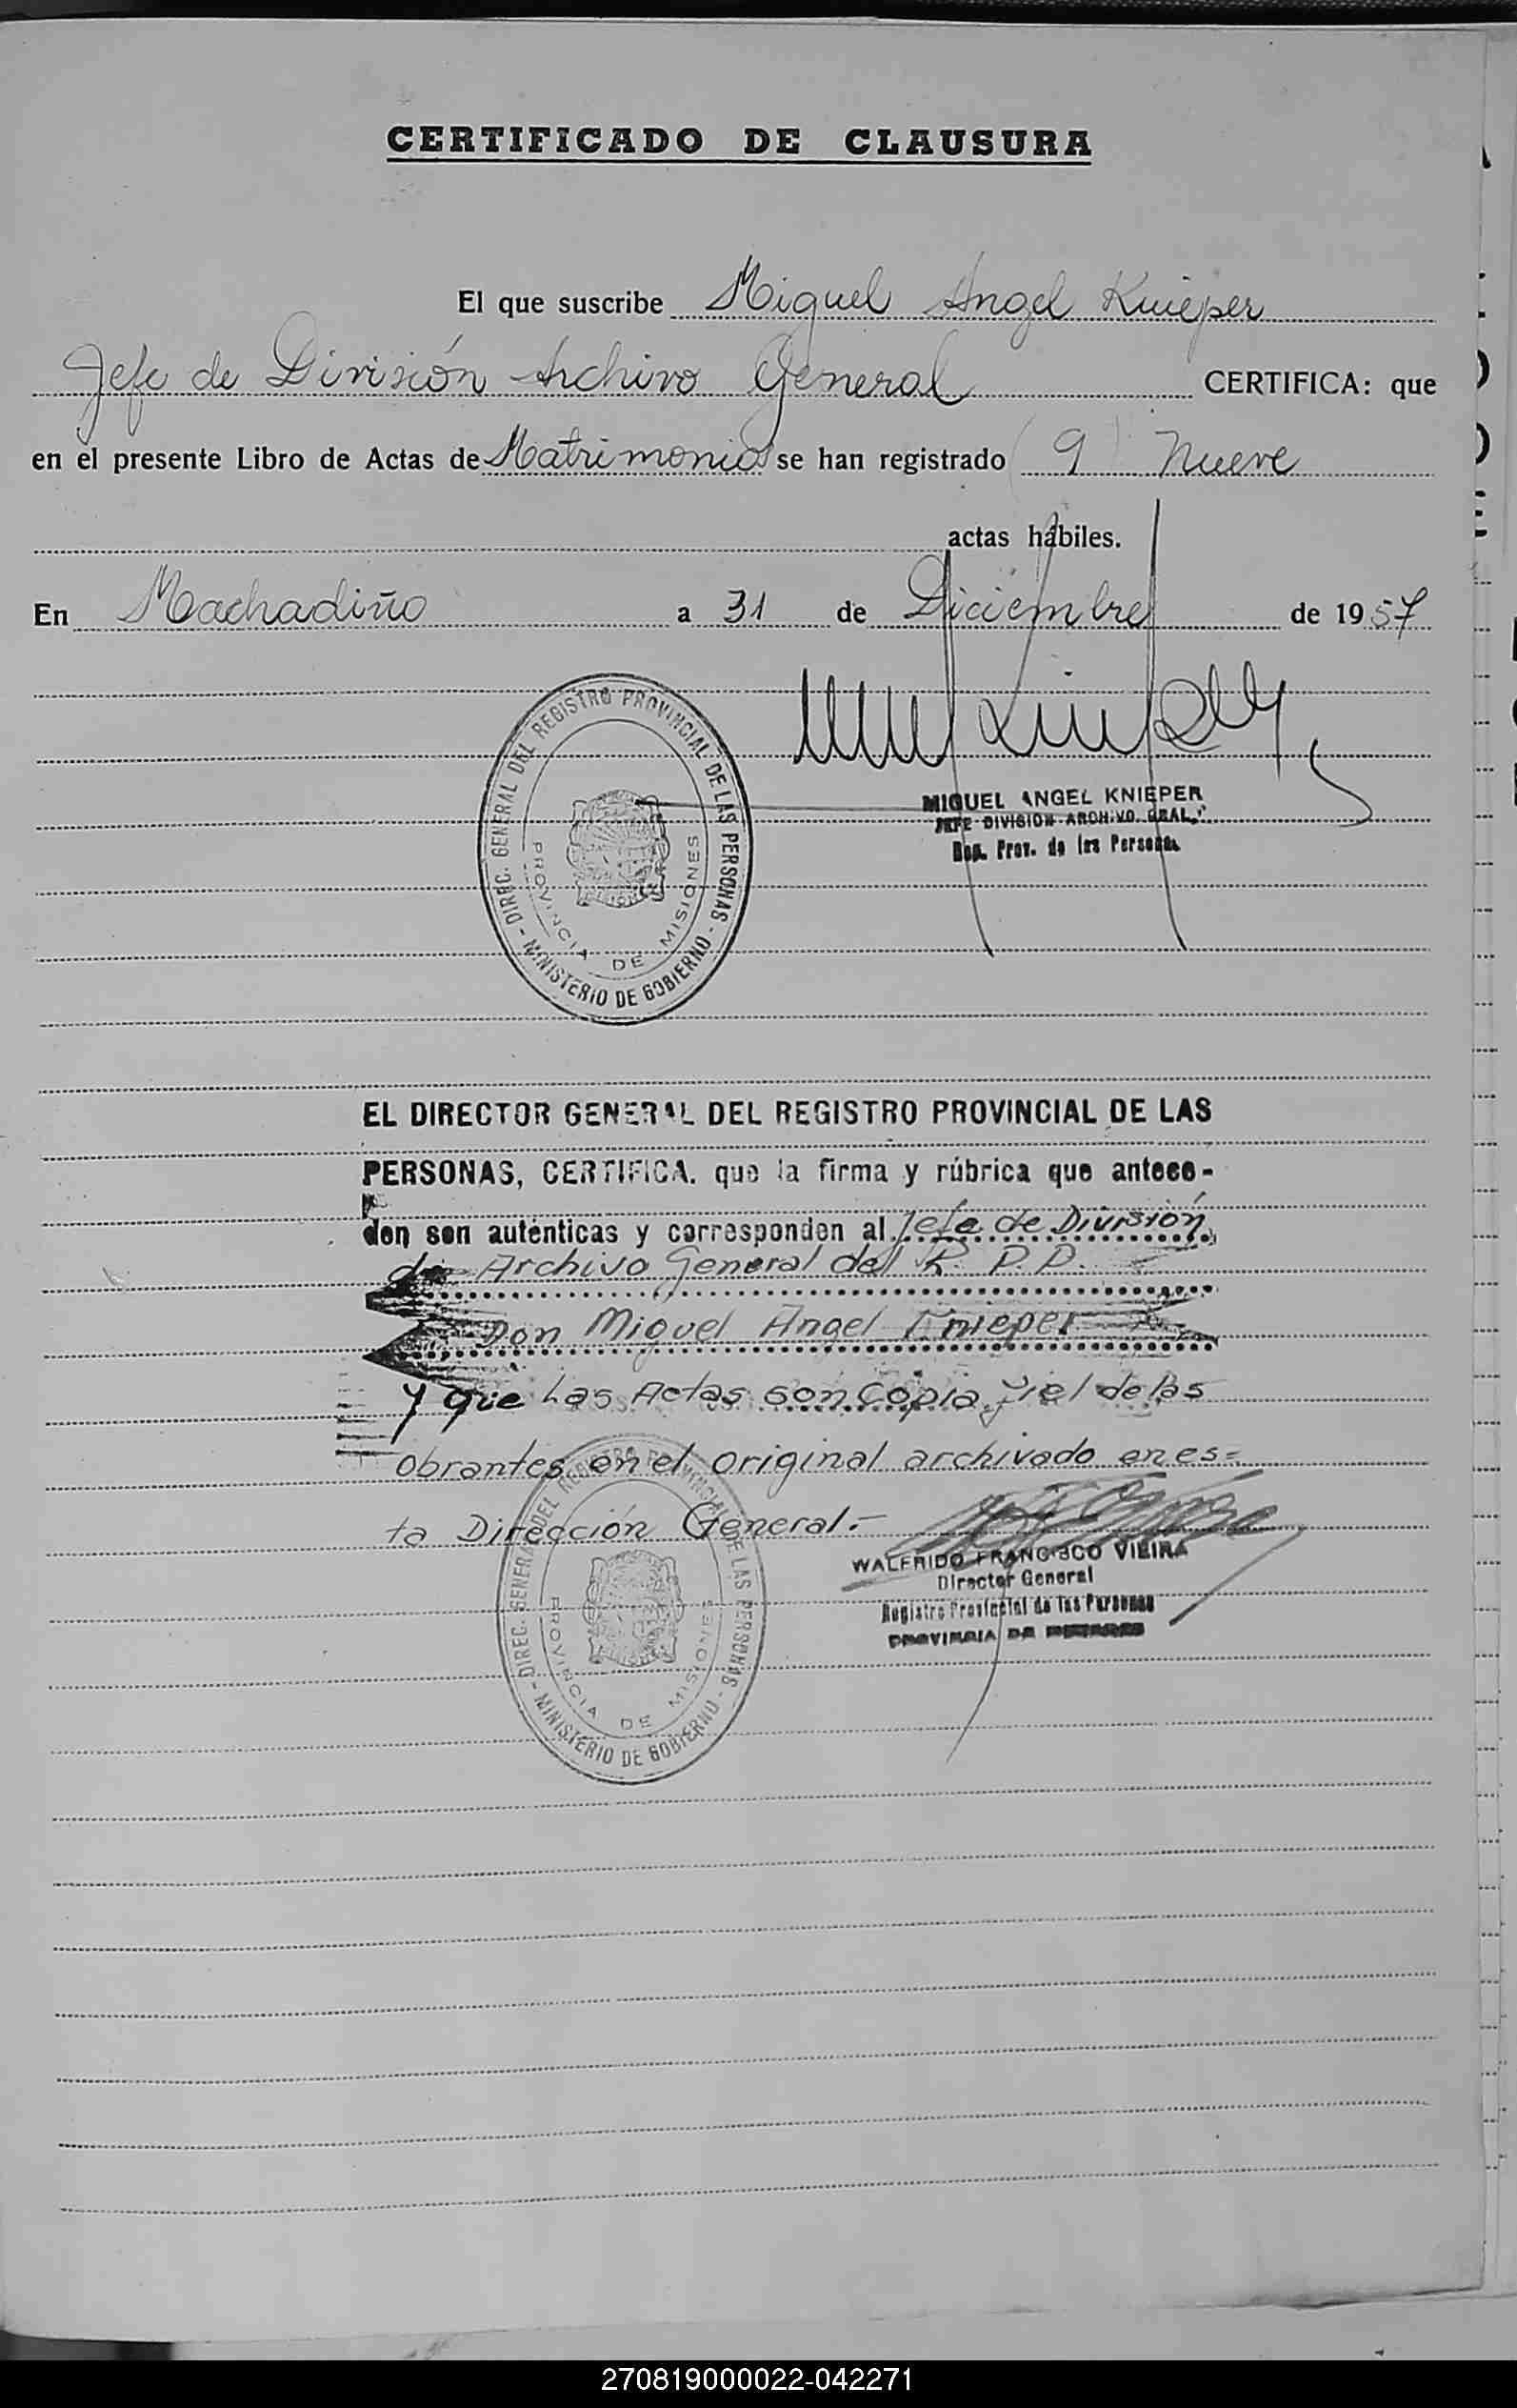 CERTIFICADO DE CLAUSURA
El que suscribe Miguel Angel Knieper
Jefe de División Archivo General CERTIFICA: que
en el presente Libro de Actas de Matrimonios se han registrado (9) Nueve
actas hábiles.
En Machadiño a 31 de Diciembre de 1957
DIREC. GENERAL DEL REGISTRO PROVINCIAL DE LAS PERSONAS - MINISTERIO DE GOBIERNO -
PROVINCIA DE MISIONES
MIGUEL ANGEL KNIEPER
JEFE DIVISION ARCHIVO GRAL.
Reg. Prov. de las Personas
EL DIRECTOR GENERAL DEL REGISTRO PROVINCIAL DE LAS
PERSONAS, CERTIFICA. que la firma y rúbrica que antece-
den son auténticas y corresponden al Jefe de División
de Archivo General del R. P. P.
Don Miguel Angel Knieper
y que Las Actas son copia fiel de las
obrantes en el original archivado en es=
ta Dirección General.-
DIREC. GENERAL DEL REGISTRO PROVINCIAL DE LAS PERSONAS - MINISTERIO DE GOBIERNO -
PROVINCIA DE MISIONES
WALFRIDO FRANCISCO VIEIRA
Director General
Registro Provincial de las Personas
PROVINCIA DE MISIONES
270819000022-042271